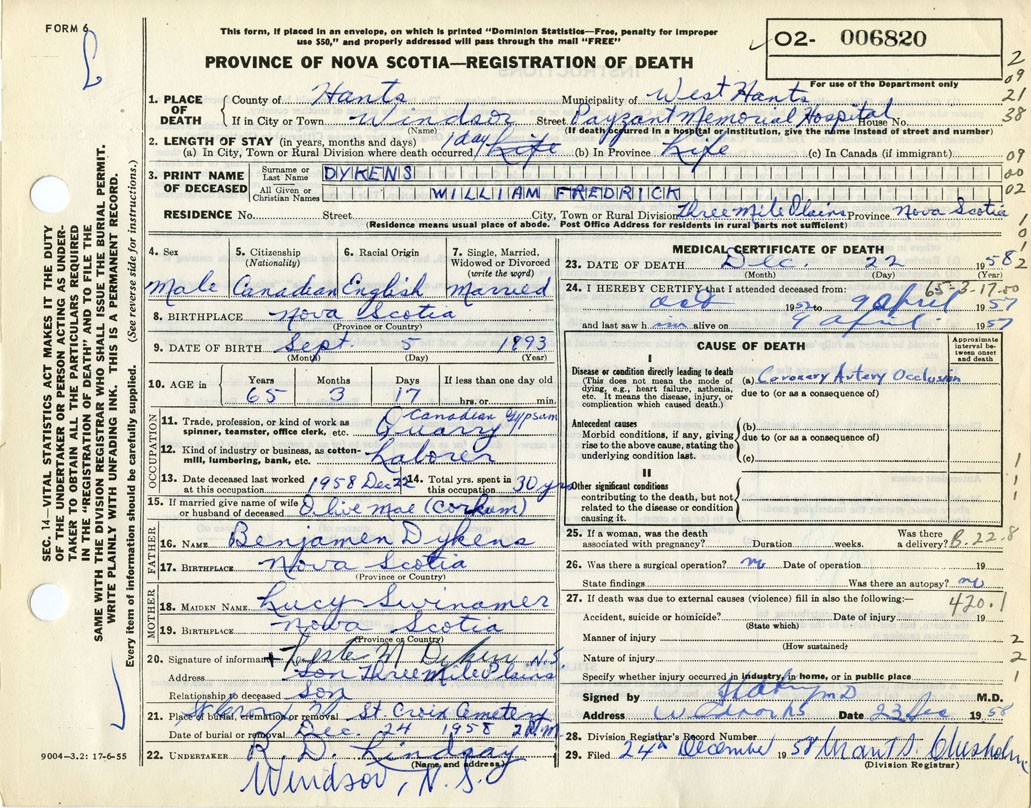 FORM 6
This form, if placed in an envelope, on which is printed "Dominion Statistics—Free, penalty for improper
use $50," and properly addressed will pass through the mail "FREE"
O2- 006820
PROVINCE OF NOVA SCOTIA—REGISTRATION OF DEATH
For use of the Department only
2
09
21
38
09
00
02
1
0
2
1. PLACE OF DEATH County of Hants Municipality of West Hants
If in City or Town Windsor Street Payzant Memorial Hospital House No.
(Name) (If death occurred in a hospital or institution, give the name instead of street and number)
2. LENGTH OF STAY (in years, months and days)
(a) In City, Town or Rural Division where death occurred 1 day Life (b) In Province Life (c) In Canada (if immigrant)
3. PRINT NAME OF DECEASED Surname or Last Name DYKENS
All Given or Christian Names WILLIAM FREDRICK
RESIDENCE No. Street City, Town or Rural Division Three Mile Plains Province Nova Scotia
(Residence means usual place of abode. Post Office Address for residents in rural parts not sufficient)
4. Sex Male
5. Citizenship (Nationality) Canadian
6. Racial Origin English
7. Single, Married, Widowed or Divorced (write the word) Married
8. BIRTHPLACE Nova Scotia
(Province or Country)
9. DATE OF BIRTH Sept. 5 1893
(Month) (Day) (Year)
10. AGE in Years 65 Months 3 Days 17 If less than one day old hrs. or min.
OCCUPATION
11. Trade, profession, or kind of work as spinner, teamster, office clerk, etc. Canadian Gypsum Quarry
12. Kind of industry or business, as cotton-mill, lumbering, bank, etc. Laborer
13. Date deceased last worked at this occupation 1958 Dec 22
14. Total yrs. spent in this occupation 30 yrs
15. If married give name of wife or husband of deceased Olive Mae (Corkum)
FATHER
16. NAME Benjamen Dykens
17. BIRTHPLACE Nova Scotia
(Province or Country)
MOTHER
18. MAIDEN NAME Lucy Swinamer
19. BIRTHPLACE Nova Scotia
(Province or Country)
20. Signature of informant + Leslie M Dykens N.S
Address Son Three Mile Plains
Relationship to deceased Son
21. Place of burial, cremation or removal St Croix Cemetery
Date of burial or removal Dec. 24 1958 2 P.M
22. UNDERTAKER R. D. Lindsay
(Name and address)
Windsor, N. S.
9004-3.2: 17-6-55
MEDICAL CERTIFICATE OF DEATH
23. DATE OF DEATH Dec. 22 1958
(Month) (Day) (Year)
65-3-17.00
24. I HEREBY CERTIFY that I attended deceased from:
Oct 1952 to 9 April 1957
and last saw him alive on 9 April 1957
CAUSE OF DEATH
Approximate interval between onset and death
I
Disease or condition directly leading to death
(This does not mean the mode of dying, e.g., heart failure, asthenia, etc. It means the disease, injury, or complication which caused death.)
(a) Coronary Artery Occlusion
due to (or as a consequence of)
Antecedent causes
Morbid conditions, if any, giving rise to the above cause, stating the underlying condition last.
(b)
due to (or as a consequence of)
(c)
II
Other significant conditions
contributing to the death, but not related to the disease or condition causing it.
1
1
1
25. If a woman, was the death associated with pregnancy? Duration weeks. Was there a delivery? B.22.8
26. Was there a surgical operation? no Date of operation 19
State findings Was there an autopsy? no
27. If death was due to external causes (violence) fill in also the following:—
420.1
Accident, suicide or homicide? Date of injury 19
(State which)
Manner of injury 2
(How sustained)
Nature of injury 2
Specify whether injury occurred in industry, in home, or in public place 1
Signed by M.D.
Address Windsor NS Date 23 Dec 1958
28. Division Registrar's Record Number
29. Filed 24th December 1958 Grant S. Chisholm
(Division Registrar)
SEC. 14—VITAL STATISTICS ACT MAKES IT THE DUTY
OF THE UNDERTAKER OR PERSON ACTING AS UNDER-
TAKER TO OBTAIN ALL THE PARTICULARS REQUIRED
IN THE "REGISTRATION OF DEATH" AND TO FILE THE
SAME WITH THE DIVISION REGISTRAR WHO SHALL ISSUE THE BURIAL PERMIT.
WRITE PLAINLY WITH UNFADING INK. THIS IS A PERMANENT RECORD.
Every item of information should be carefully supplied. (See reverse side for instructions.)